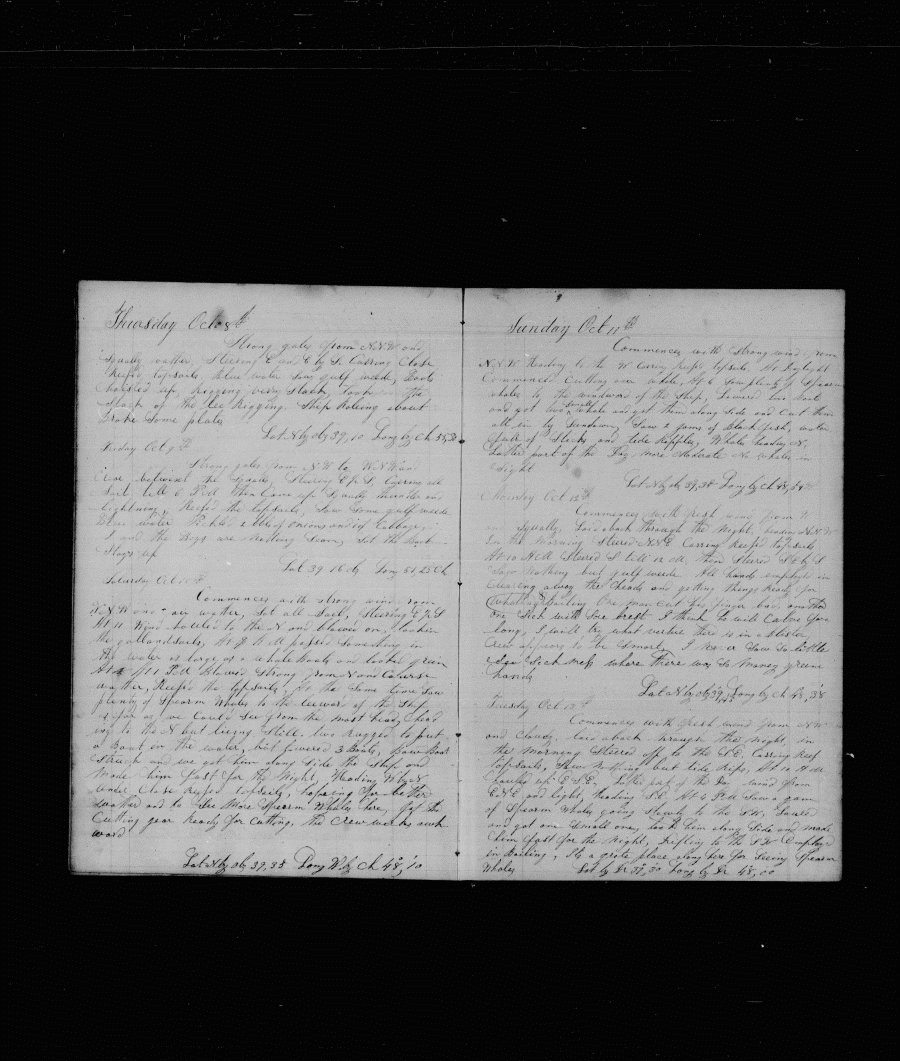 Thursday Oct 8th
Strong gales from N.N.W. and
Squaly wather, Steering E and E by S. Carring Close
Reef'd topsails, blue water Saw gulf weede, Boats
hoisted up, Rigging very Slack, took the
Slack of the Lee Rigging. Ship Roleing about
broke Some plates
Lat N by ob 39,10 Long by Ch 55,
Friday Oct 9th
Strong gales from N.W. to W.N.W. and
fine betwixt the Squals, Steering E by S, Carring all
Sail till 6 P.M. then Came up Squaly thunder and
lightning, Reef'd the topsails, Saw Some gulf weede
Blue water Onions and of Cabbage,
and the Hogs are
Slops up
Lat 39 16 ob Long 51,25 Ch
Saturday Oct 10th
Commences with strong wind from
W.N.W. and wather, Set all Sail, Steering E by S
At 11 Wind hauled to the N and blowed on, took in
the gallandsails, At A.M. passed Something in
the water as large as a whale Boat and looked green
At P.M. Blowed Strong from N and
wather, Reef'd the topsails, At the Same time Saw
plenty of Sperm Whales to the leeward of the Ship
as far as we Could See from the mast head, head
ing to the N but lieing Still, two rugged to put
a Boat on the water, but lowered 3 Boats, Bow Boat
Struck and we got him along Side the Ship and
made him fast for the Night, Heading W by N
under Close Reef'd topsails, hopeing for better
wather and to See More Sperm Whales here, got the
Cutting gear ready for Cutting, the Crew works awk
ward
Lat N by ob 39,35 Long W by Ch 48,10
Sunday Oct 11th
Commences with Strong wind from
N.N.W. Heading to the W Carring Reef'd topsails. At Daylight
Commenced Cutting our whale, At 6 Saw plenty of Sperm
whales to the windward of the Ship, Lowered two Boats
and got two small whales and got them along Side and Cut them
all in by Sundown, Saw 2 gams of Blackfish, water
full of Slicks and tide Ripples, Whales heading N,
Latter part of the Day more Moderate No whales in
Sight
Lat N by ob 39,38 Long by Ch 48,54
Monday Oct 12th
Commences with fresh wind from N
and Squally, Laid aback through the Night, heading N.N.W
In the Morning Steered N.N.E Carring Reef'd topsails
At 10 A.M. Steered S till 12 M, then Steered S by S
Saw Nothing but gulf weede All hands employed in
Clearing away the heads and getting things ready for
Boiling One man Cut his finger bad, another
one Sick with Sore breast I think he will Calve fore
long, I will try what vertue there is in a blister
Crew appears to be Smart, I never Saw So little
edge Such mess where there was So Many green
hands
Lat N by ob 39, Long by Ch 48,38
Tuesday Oct 13th
Commences with fresh wind from N.W
and Cloudy, laid aback through the Night, in
the Morning Steered off to the S.E. Carring Reef
topsails, Saw Nothing but tide Rips, At 10 A.M.
hauled up E.S.E. Later part of the Day wind from
E.N.E and light, Heading S.E. At 4 P.M Saw a gam
of Sperm Whales going Slowly to the S.W. Lowered
and got one Small one, took him along Side and made
him fast for the Night, Drifting to the S.W Employed
in Boiling, Its a grate place along here for Seeing Sperm
Whales Lat by Dr 39,30 Long by Dr 48,00